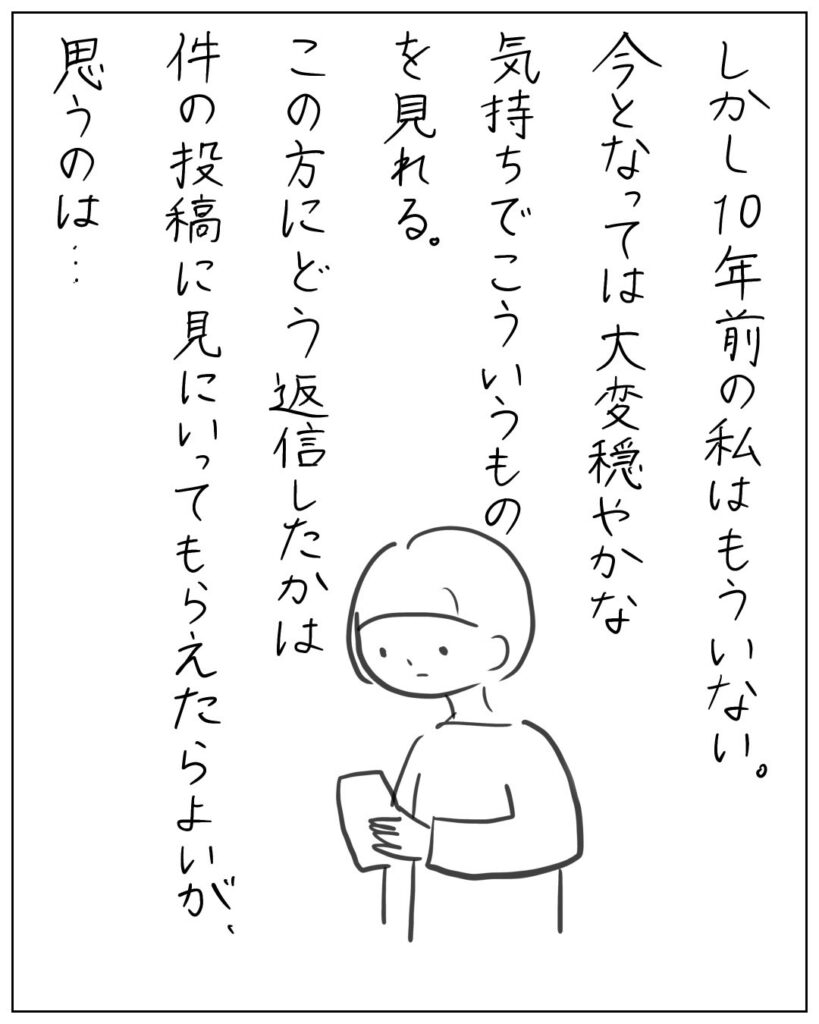 しかし10年前の私はもういない。
今となっては大変穏やかな
気持ちでこういうもの
を見れる。
この方にどう返信したかは
件の投稿に見にいってもらえたらよいが、
思うのは…